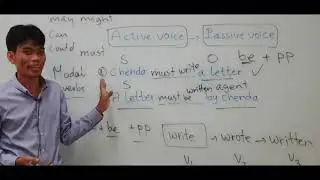 may might
Can
could must
Active voice → Passive voice
S O be + pp
Modal ① Chenda must write a letter ✓
verbs S written agent
A letter must be by chenda
+ be + pp
write → wrote → written
V₂ V₃